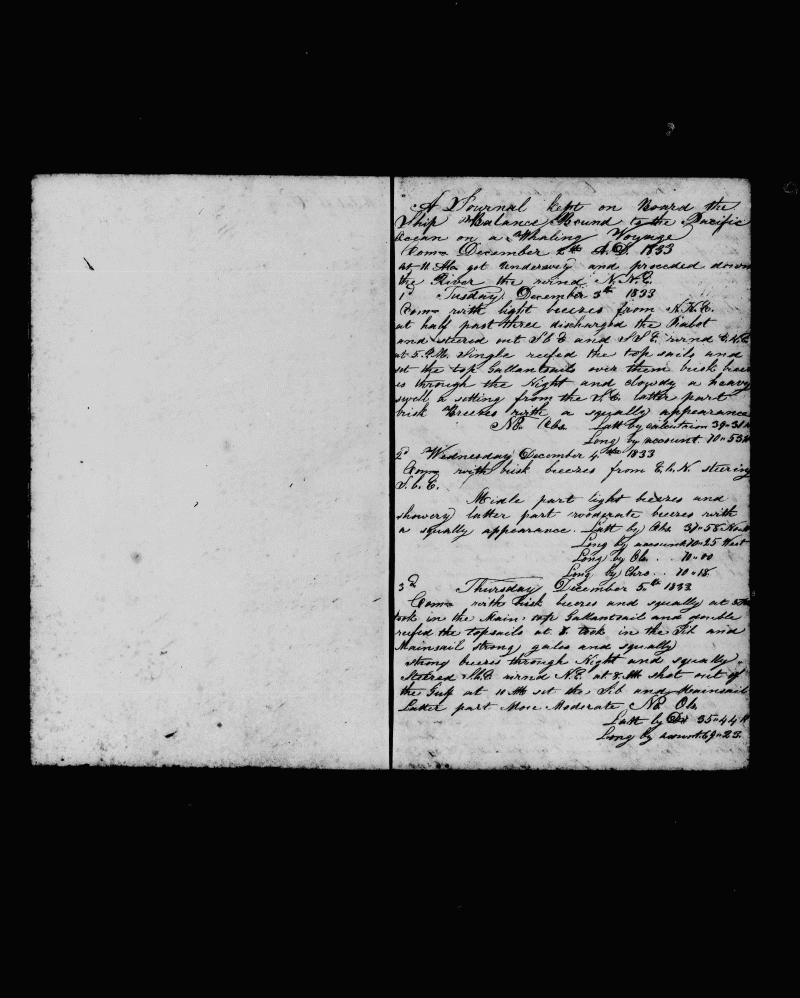 A Journal kept on Board the
Ship Balance Bound to the Pacific
Ocean on a Whaling Voyage
Com= December 2nd A.D. 1833
at 11 AM got underway and proceded down
the River the wind N.N.E.
1st Tuesday December 3th 1833
Com= with light beezes from N.N.E.
at half past three discharged the Pilot
and steered out S b E and S S E. wind E.N.E
at 5 P.M. Single reefed the top sails and
set the top Gallantsails over them brisk breez
es through the Night and clowdy a heavy
swell a setting from the latter part
brisk Breezes with a squally appearance
No Obs. Latt by calculation 39"38 N
Long by account 70"53 W
2d Wednesday December 4th 1833
Com= with brisk beezes from E.b.N. steering
S.b.E.
Midle part light beezes and
showery latter part moderate beezes with
a squally appearance. Latt by Obs 37"58 North
Long by account 70"25 West
Long by Ob. .. 70"00
Long by Chro... 70"18
3d Thursday December 5th 1833
Com= with brisk beezes and squally at
took in the Main top Gallantsail and double
reefed the topsails at 8 took in the Jib and
Mainsail strong gales and squally
strong beezes through Night and squally.
Steered S.b.E. wind N.E. at 8 AM shot out of
the Gulf at 10 AM set the Jib and Mainsail
Latter part More Moderate No Ob
Latt by 35"44 N
Long by account 69"23